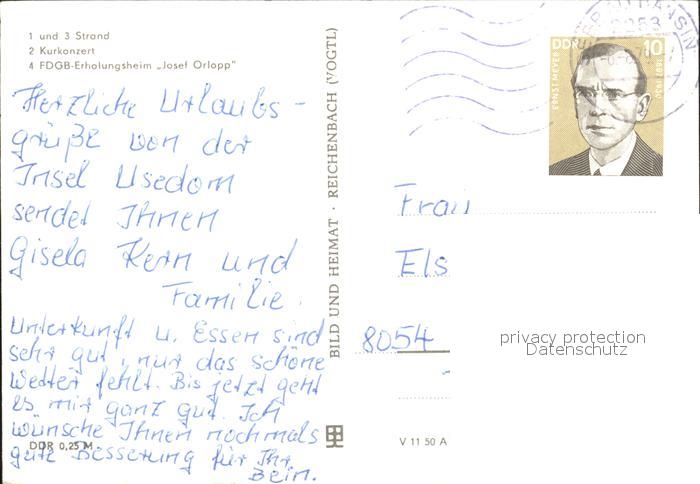 1 und 3 Strand
2 Kurkonzert
4 FDGB-Erholungsheim „Josef Orlopp"
Herzliche Urlaubs-
grüße von der
Insel Usedom
sendet Ihnen
Gisela Kern und
Familie.
Unterkunft u. Essen sind
sehr gut, nur das schöne
Wetter fehlt. Bis jetzt geht
es mir ganz gut. Ich
wünsche Ihnen nochmals
gute Besserung für Ihr
Bein.
DDR 0,25 M
BILD UND HEIMAT · REICHENBACH (VOGTL)
V 11 50 A
DDR 10
ERNST MEYER 1887-1930
BANSIN
2253
Frau
Els
8054
privacy protection
Datenschutz